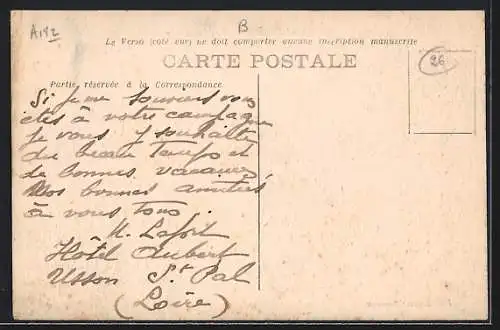 A142
B
Le Verso (côté vue) ne doit comporter aucune inscription manuscrite
CARTE POSTALE
26
Partie réservée à la Correspondance
Si je me souviens vous
êtes à votre campagne
Je vous y souhaite
du beau temps et
de bonnes vacances,
Nos bonnes amitiés
à vous tous.
Hôtel Aubert
Usson St Pal
(Loire)